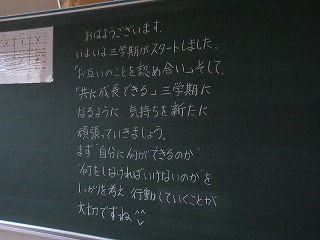 おはようございます。
いよいよ三学期がスタートしました。
「お互いのことを認め合い」そして、
「共に成長できる」三学期に
なるように、気持ちを新たに
頑張っていきましょう。
まず"自分に何ができるのか"
"何をしなければいけないのか"を
しっかり考え 行動していくことが
大切ですね^^